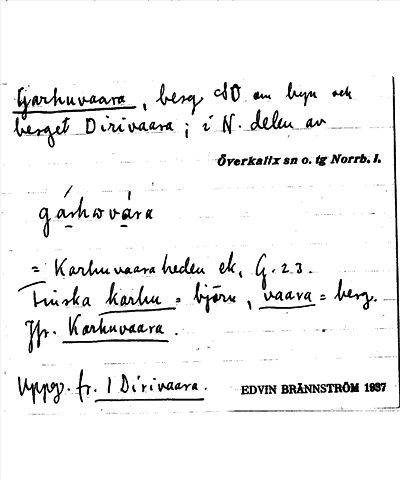 Garhuvaara, berg SO om byn och
berget Dirivaara; i N. delen av
Överkalix sn o. tg Norrb. l.
gárhωvára
= Karhuvaaraheden ek, G. 23.
Finska karhu = björn, vaara = berg.
Jfr. Karhuvaara.
Uppg. fr. 1 Dirivaara.
EDVIN BRÄNNSTRÖM 1937